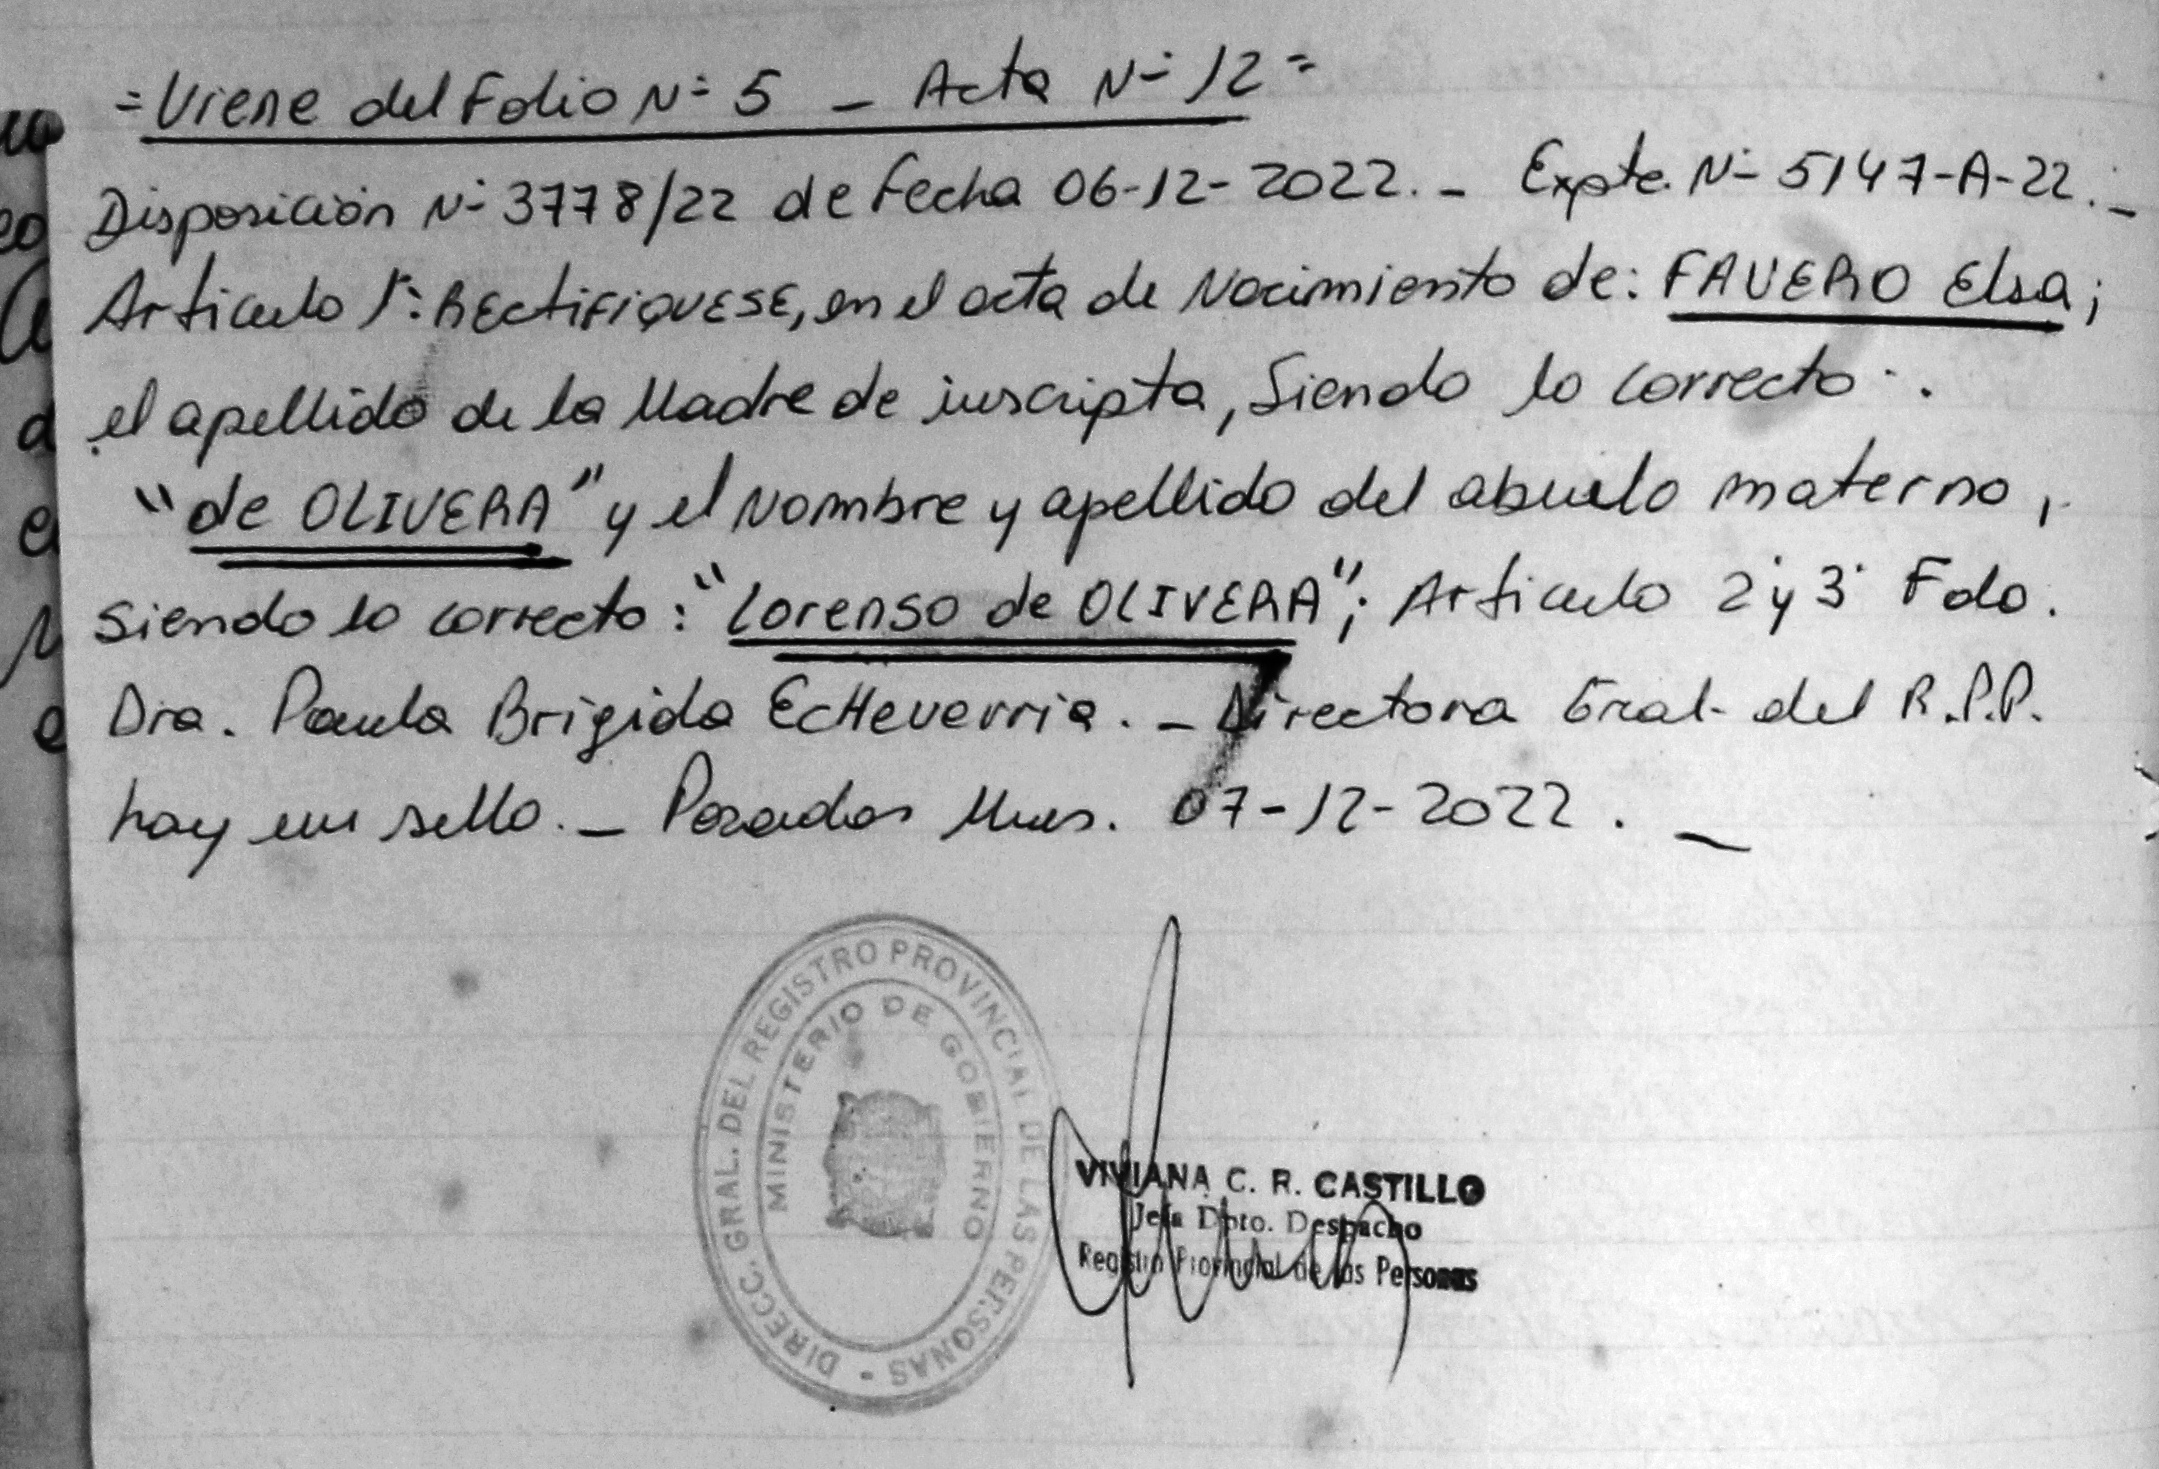 =Viene del Folio N° 5 _ Acta N° 12=
Disposición N° 3778/22 de Fecha 06-12-2022._ Expte. N° 5147-A-22._
Articulo 1°: RECtiFiQUESE, en el acta de Nacimiento de: FAVERO Elsa;
el apellido de la Madre de inscripta, Siendo lo correcto:
"de OLIVERA" y el Nombre y apellido del abuelo materno,
siendo lo correcto: "Lorenso de OLIVERA"; Articulo 2° y 3° Fdo.
Dra. Paula Brigida EcHeverria._ Directora Gral. del R.P.P.
hay un sello._ Posadas Mnes. 07-12-2022._
DIRECC. GRAL. DEL REGISTRO PROVINCIAL DE LAS PERSONAS -
MINISTERIO DE GOBIERNO
VIVIANA C. R. CASTILLO
Jefa Dpto. Despacho
Registro Provincial de las Personas